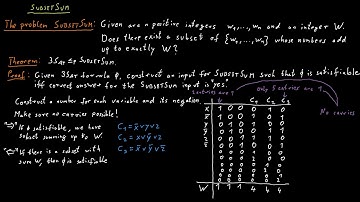 SUBSETSUM
The problem SUBSETSUM: Given are n positive integers w1,...,wn and an integer W.
Does there exist a subset of {w1,...,wn} whose numbers add
up to exactly W?
Theorem: 3SAT ≤p SUBSETSUM.
Proof: Given 3SAT formula φ, construct an input for SUBSETSUM such that φ is satisfiable
iff correct answer for the SUBSETSUM input is yes.
Construct a number for each variable and its negation.
Make sure no carries possible!
"⇒" If φ satisfiable, we have
subset summing up to W.
"⇐" If there is a subset with
sum W, then φ is satisfiable
C1 = x̄ ∨ y ∨ z
C2 = x ∨ ȳ ∨ z
C3 = x̄ ∨ ȳ ∨ z̄
Only 5 entries are 1
2 entries are 1
No carries
C1 C2 C3
x 1 0 0 0 1 0
x̄ 1 0 0 1 0 1
y 0 1 0 1 0 0
ȳ 0 1 0 0 1 1
z 0 0 1 1 1 0
z̄ 0 0 1 0 0 1
W 1 1 1 4 4 4